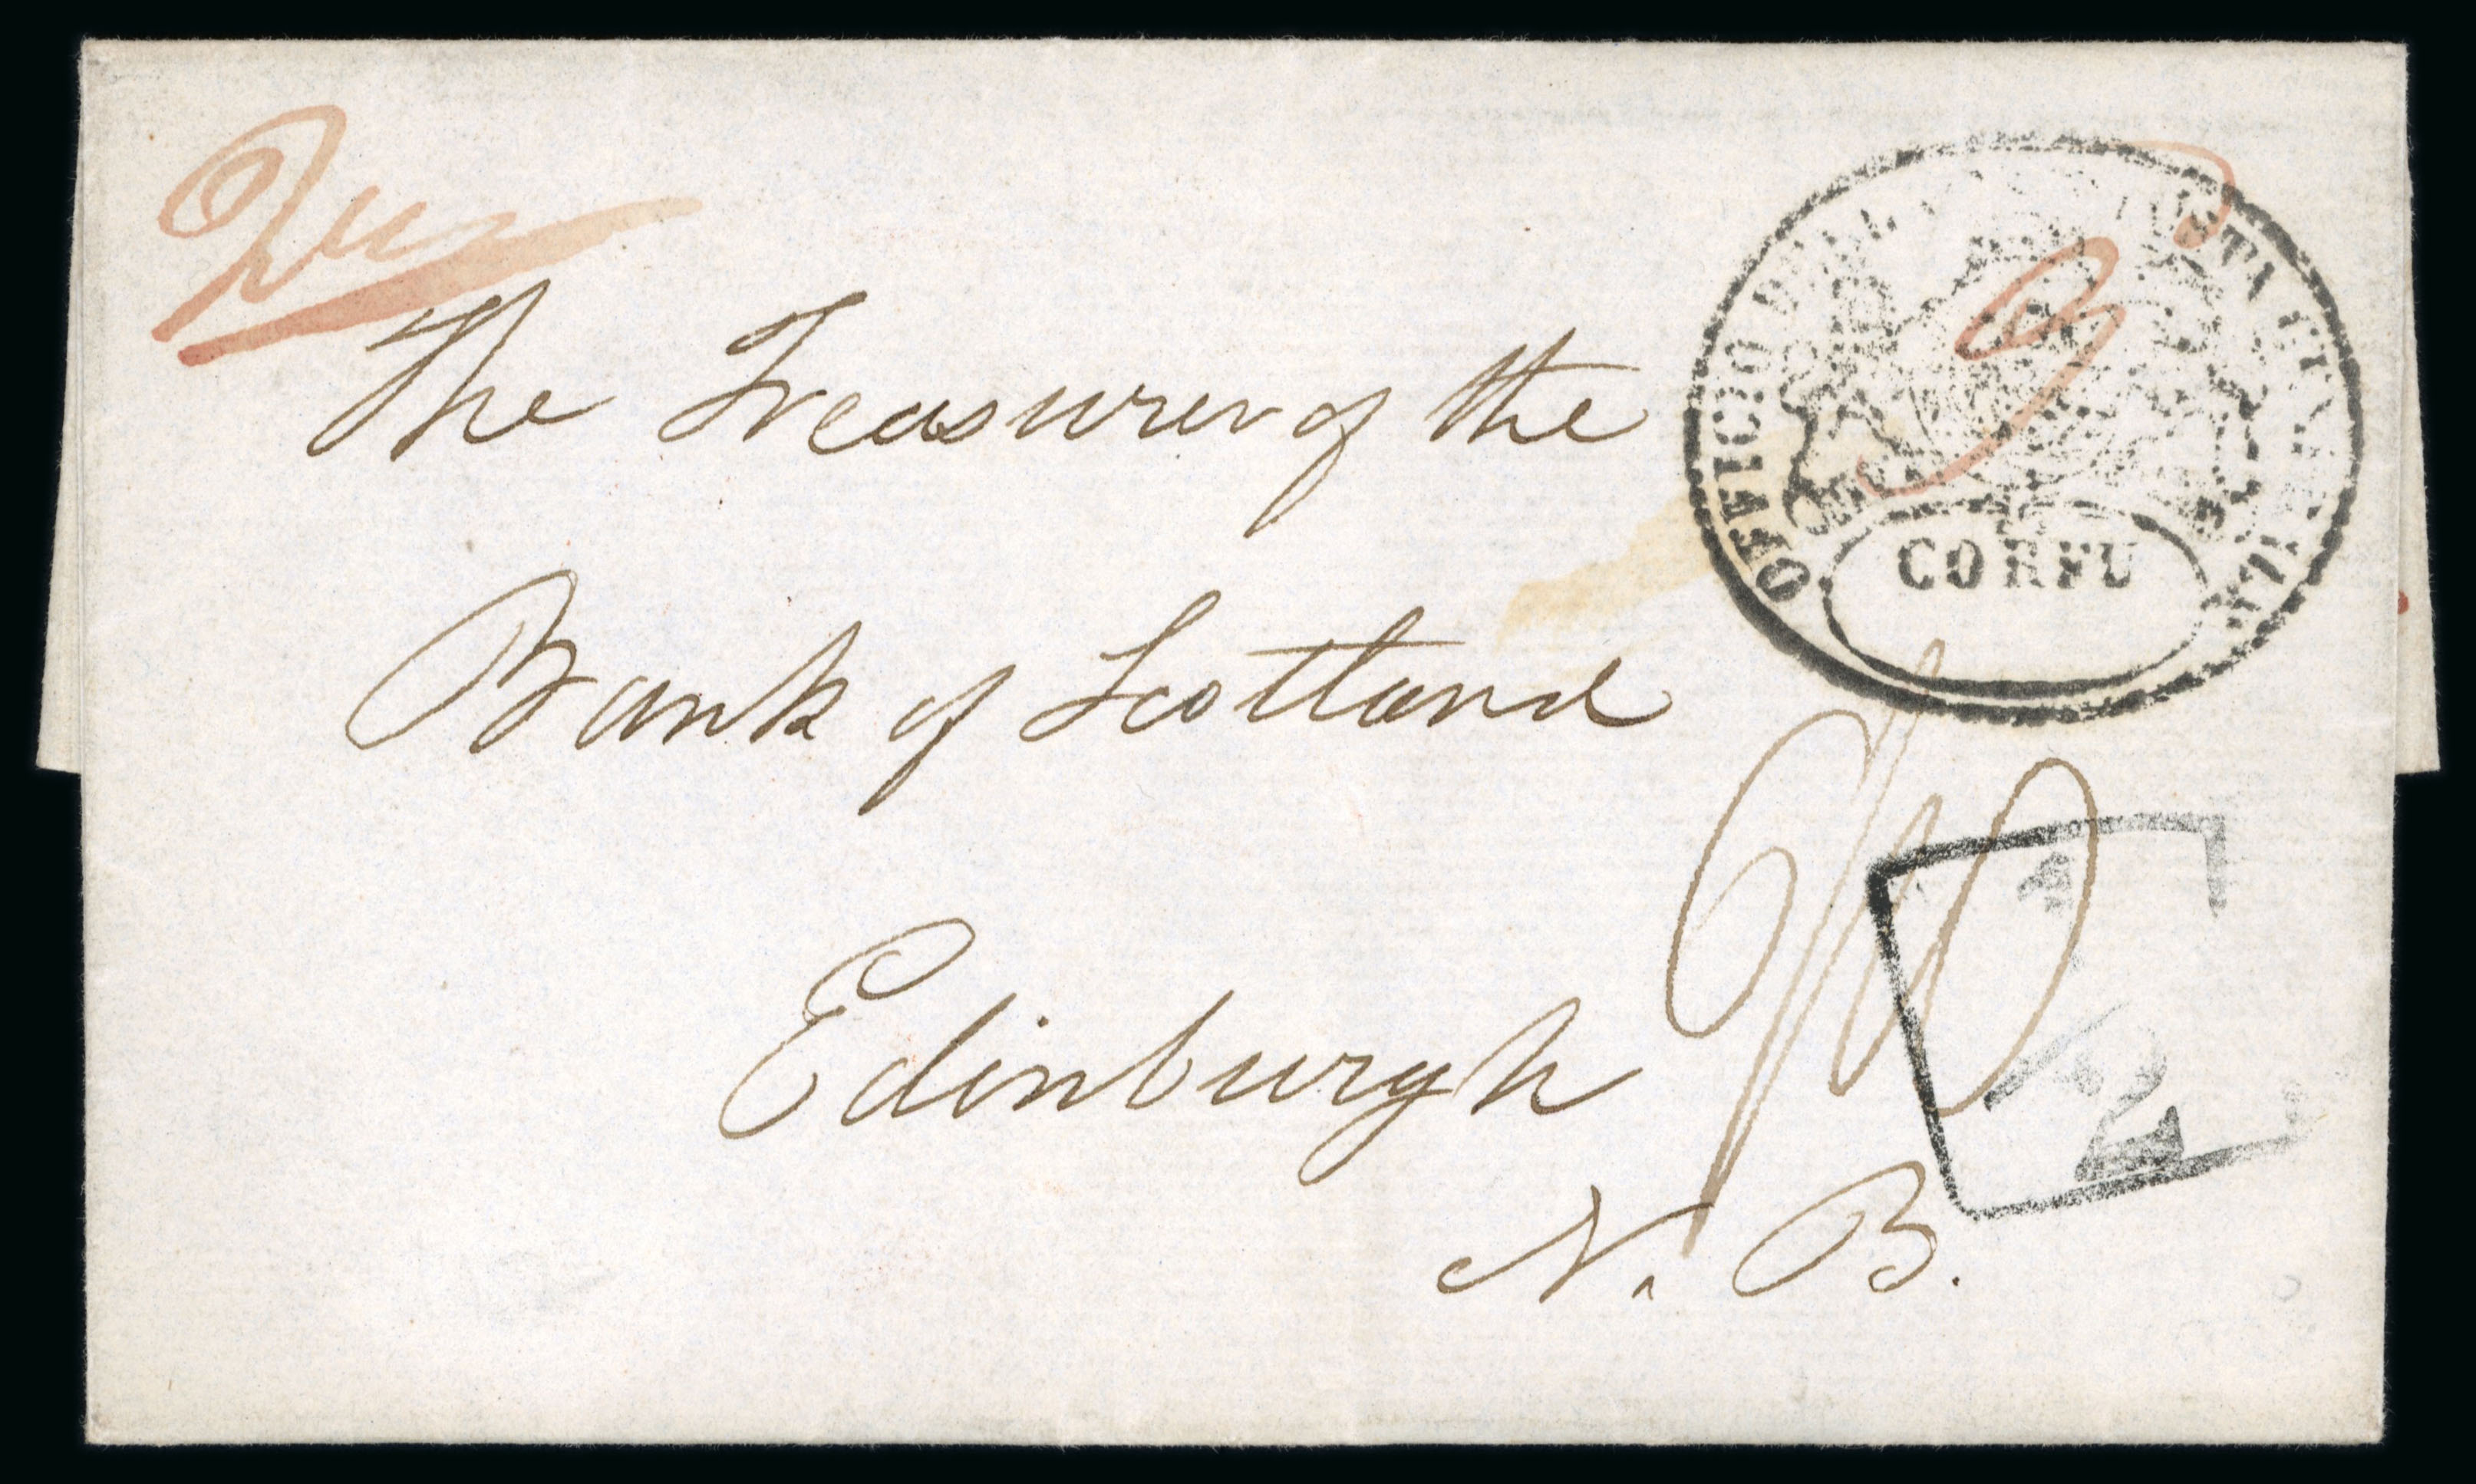 The Treasurer of the
Bank of Scotland
Edinburgh
N. B.
OFFICIO
CORFU
1
/2